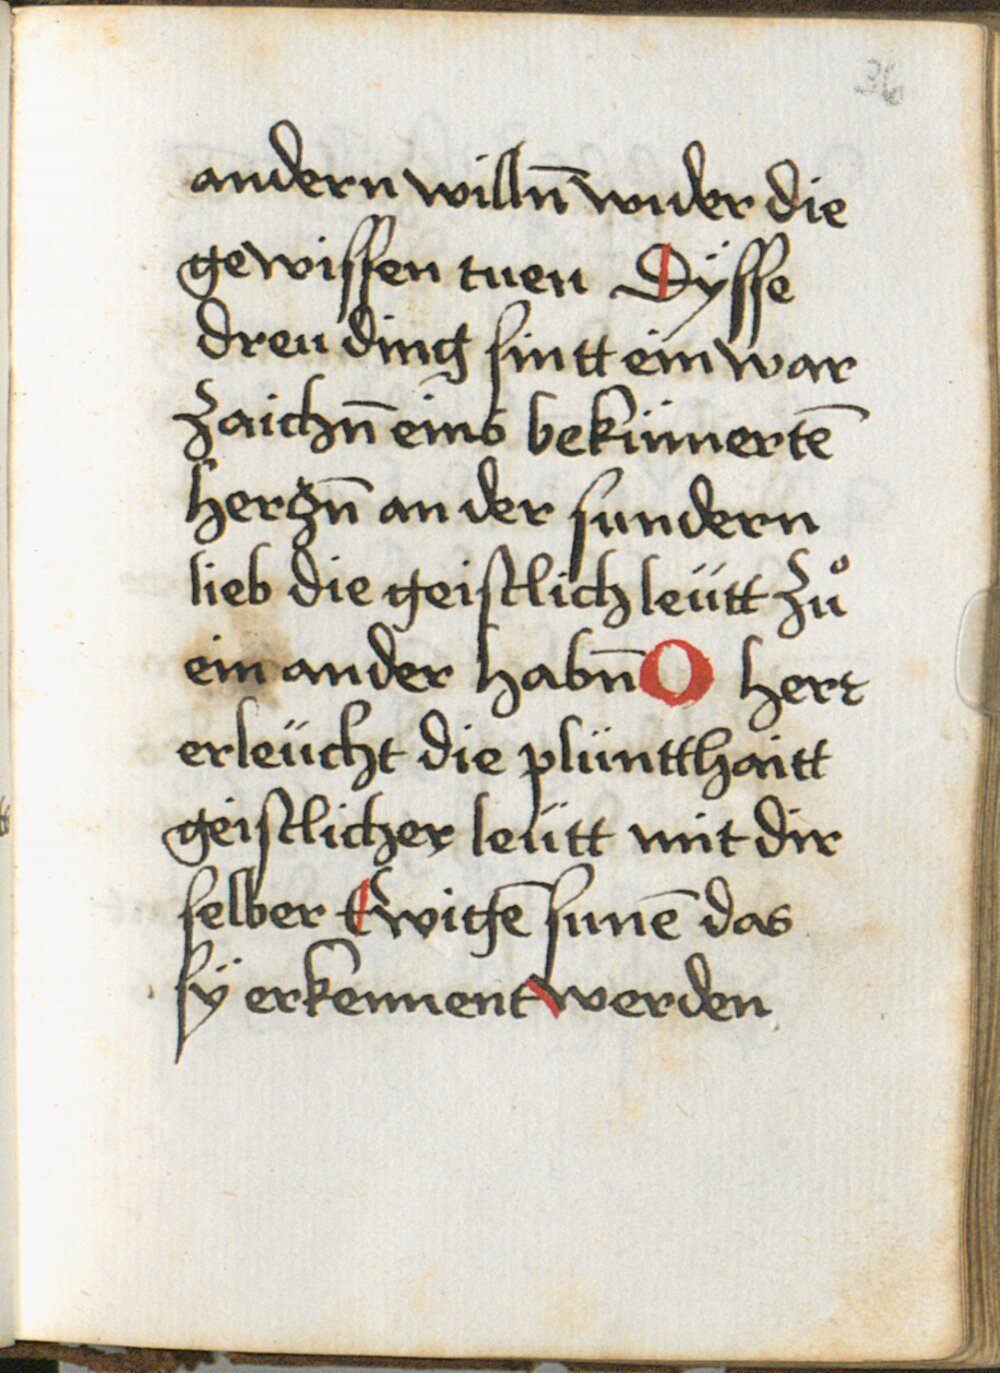 36
andern willn̄ wider die
gewissen tuen Dÿsse
dreu ding sintt ein war
zaichn̄ eins bekümertē
herczn̄ an der sundern
lieb die geistlich leütt zů
ein ander habn̄ O herr
erleücht die plüntthaitt
geistlicher leütt mit dir
selber Ewigē sunē das
sÿ erkennent werden